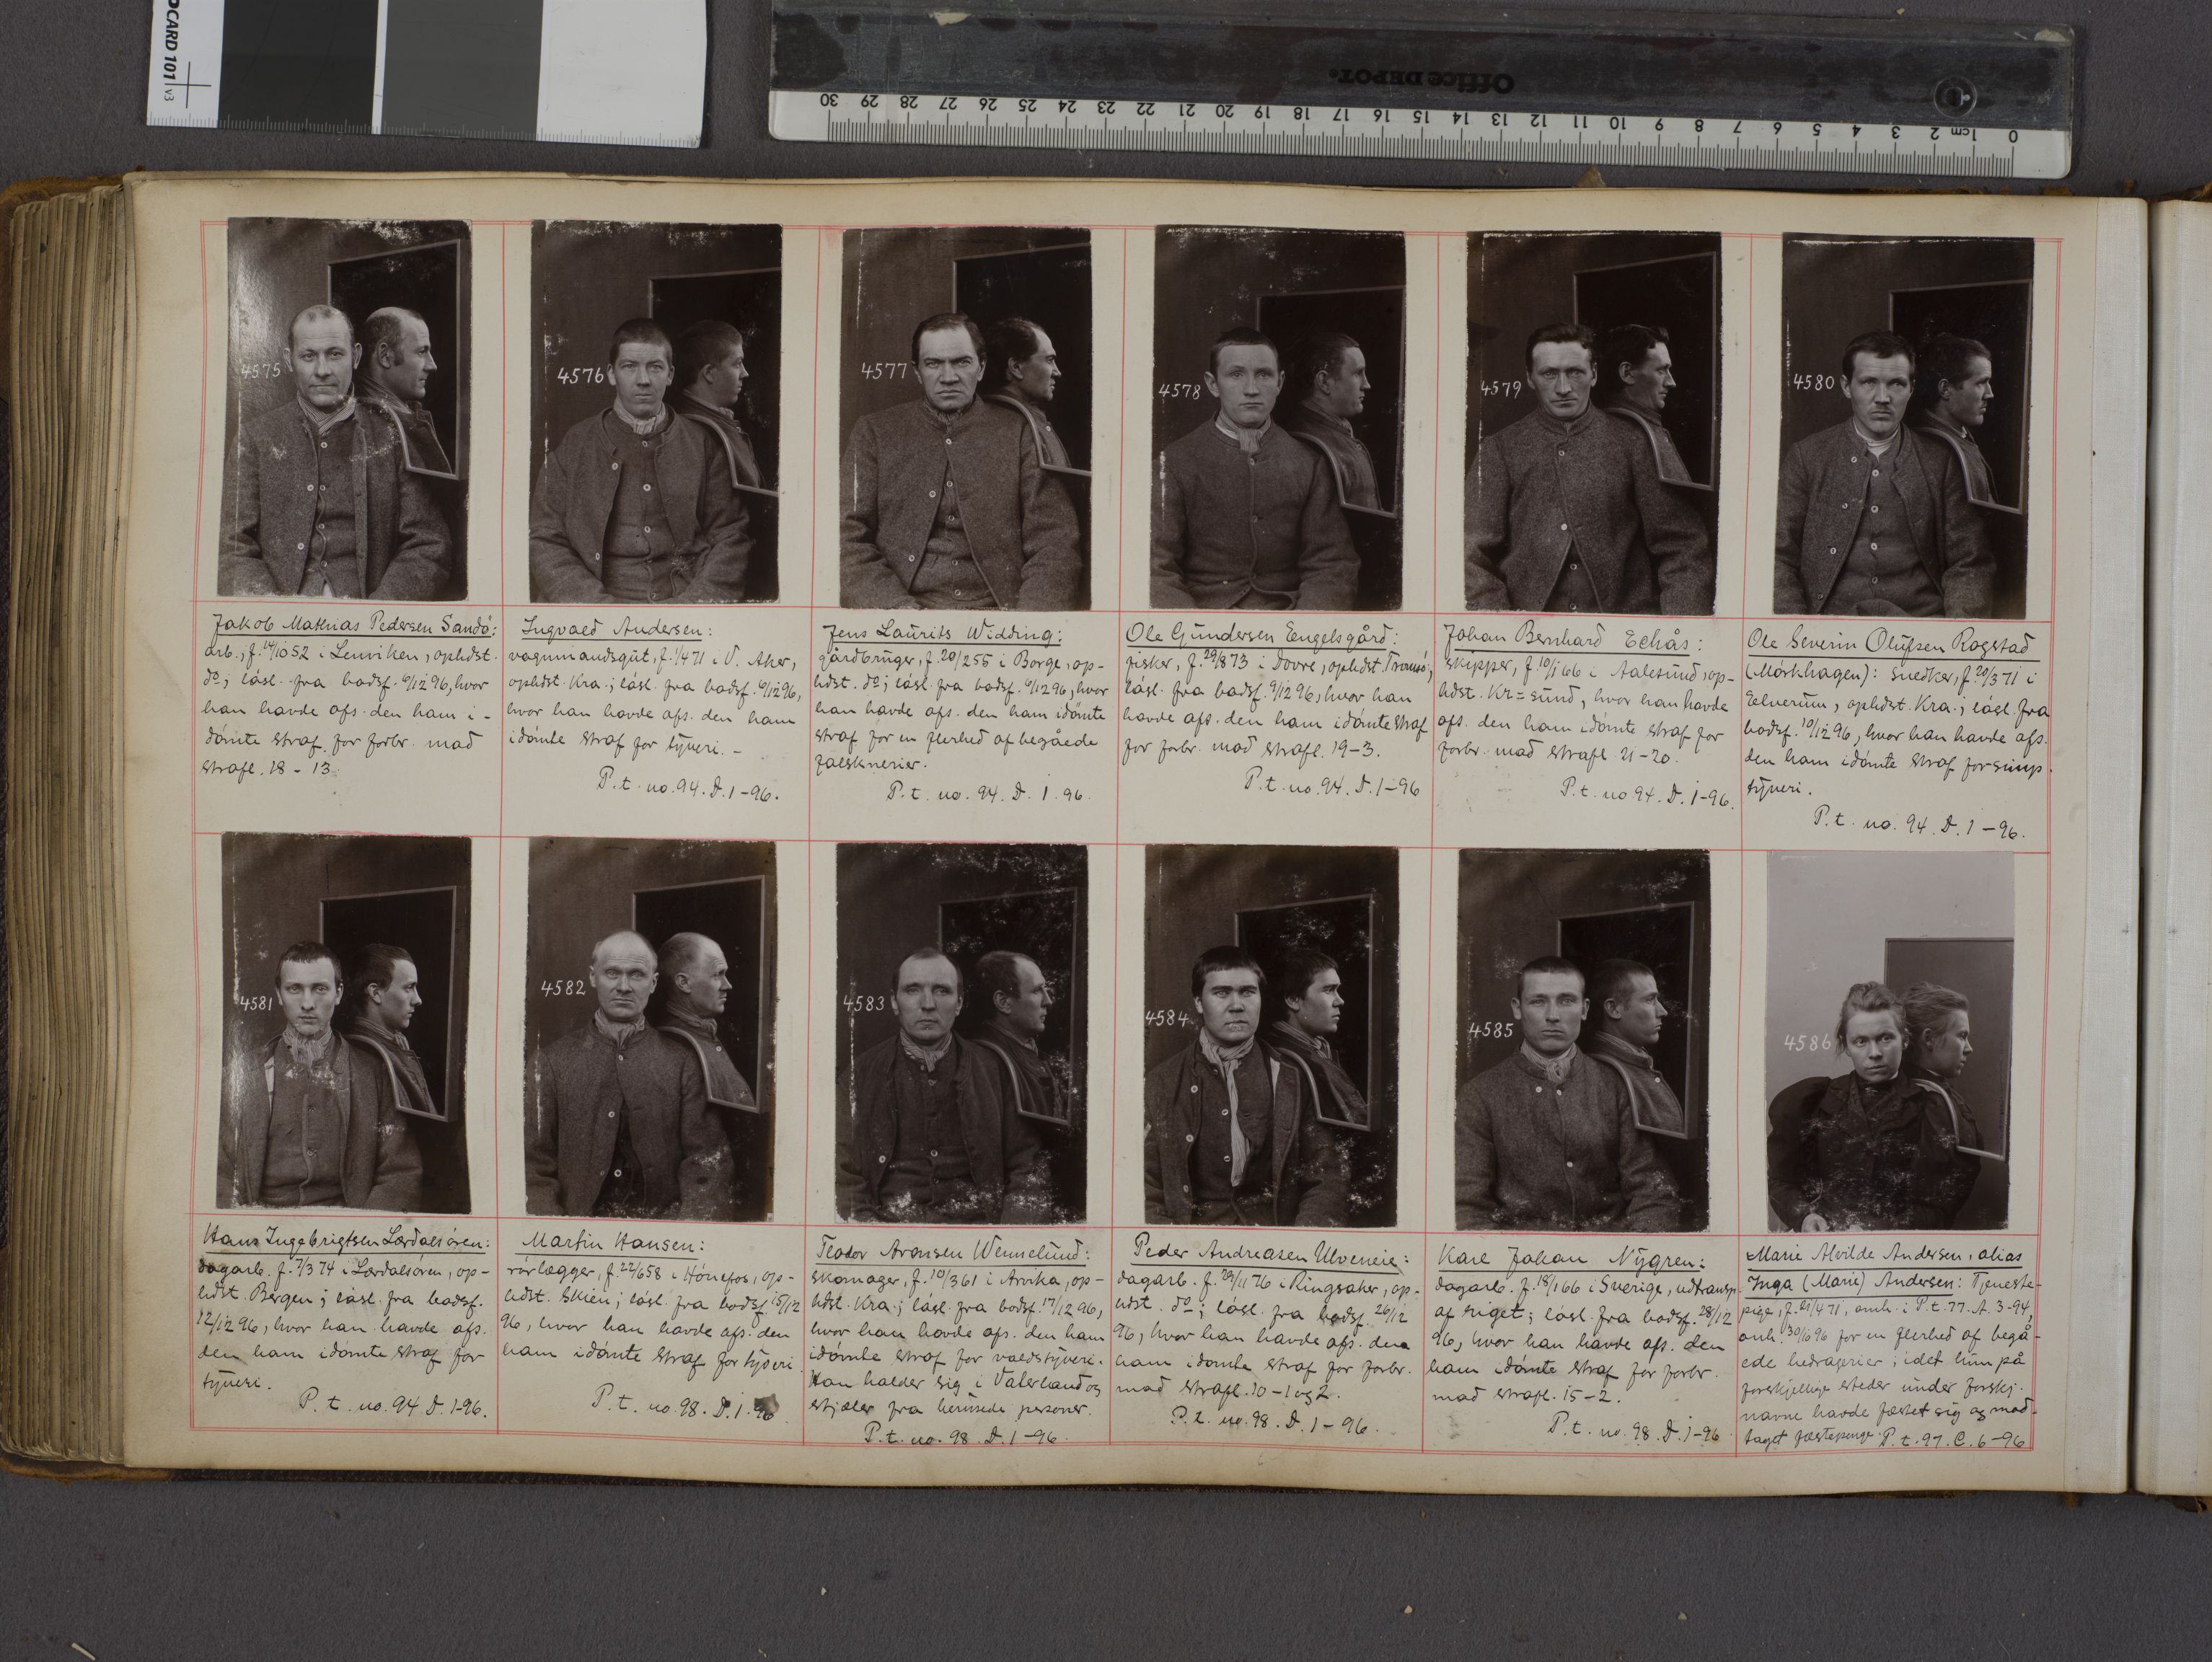 OCARD 101 v3
Office DEPOT.
0 1cm 2 3 4 5 6 7 8 9 10 11 12 13 14 15 16 17 18 19 20 21 22 23 24 25 26 27 28 29 30
4575
Jakob Mathias Pedersen Sandö:
arb., f. 14/10 52 i Lenviken, ophdst.
do; lösl. fra bodsf. 6/12 96, hvor
han havde afs. den ham i-
dömte straf for forbr. mod
strafl. 18-13.
4576
Ingvald Andersen:
vognmandsgut, f. 1/4 71 i V. Aker,
ophdst. Kra.; lösl. fra bodsf. 6/12 96,
hvor han havde afs. den ham
idömte straf for tyveri. -
P.t. no. 94. D. 1-96.
4577
Jens Laurits Widding:
gårdbruger, f. 20/2 55 i Borge, op-
hdst. do; lösl. fra bodsf. 6/12 96, hvor
han havde afs. den ham idömte
straf for en flerhed af begåede
falsknerier.
P.t. no. 94. D. 1. 96.
4578
Ole Gundersen Engelsgård:
fisker, f. 29/8 73 i Dovre, ophdst. Tromsö;
lösl. fra bodsf. 9/12 96, hvor han
havde afs. den ham idömte straf
for forbr. mod strafl. 19-3.
P.t. no. 94. D. 1-96
4579
Johan Bernhard Echås:
skipper, f. 10/1 66 i Aalesund, op-
hdst. Kr=sund, hvor han havde
afs. den ham idömte straf for
forbr. mod strafl. 21-20.
P.t. no 94. D. 1-96.
4580
Ole Severin Olufsen Rogstad
(Mörkhagen): snedker, f. 20/3 71 i
Elverum, ophdst. Kra.; lösl. fra
bodsf. 10/12 96, hvor han havde afs.
den ham idömte straf for simp.
tyveri.
P.t. no. 94. D. 1-96.
4581
Hans Ingebrigtsen Lærdalsören:
dagarb. f. 7/3 74 i Lærdalsören, op-
hdst. Bergen; lösl. fra bodsf.
12/12 96, hvor han havde afs.
den ham idömte straf for
tyveri.
P.t. no. 94 D. 1-96.
4582
Martin Hansen:
rörlægger, f. 22/6 58 i Hönefos, op-
hdst. Skien; lösl. fra bodsf. 15/12
96, hvor han havde afs. den
ham idömte straf for tyveri.
P.t. no. 98. D. 1. 96.
4583
Teodor Aronsen Wennelund:
skomager, f. 10/3 61 i Arvika, op-
hdst. Kra.; lösl. fra bodsf. 17/12 96,
hvor han havde afs. den ham
idömte straf for voldstyveri.
Han holder sig i Vaterland og
stjæler fra berusede personer.
P.t. no. 98. D. 1-96.
4584
Peder Andreasen Ulveneie:
dagarb. f. 29/11 76 i Ringsaker, op-
hdst. do; lösl. fra bodsf. 26/12
96, hvor han havde afs. den
ham idömte straf for forbr.
mod strafl. 10-1 og 2.
P.t. no. 98. D. 1-96.
4585
Karl Johan Nygren:
dagarb. f. 18/1 66 i Sverige, udtransp.
af riget; lösl. fra bodsf. 28/12
96, hvor han havde afs. den
ham idömte straf for forbr.
mod strafl. 15-2.
P.t. no. 98. D. 1-96.
4586
Marie Alvilde Andersen, alias
Inga (Marie) Andersen: Tjeneste-
pige, f. 21/4 71, omh. i P.t. 77. A. 3-94,
anh. 30/6 96 for en flerhed af begå-
ede bedragerier; idet hun på
forskjellige steder under forskj.
navne havde fæstet sig og mod-
taget fæstepenge. P.t. 97. C. 6-96